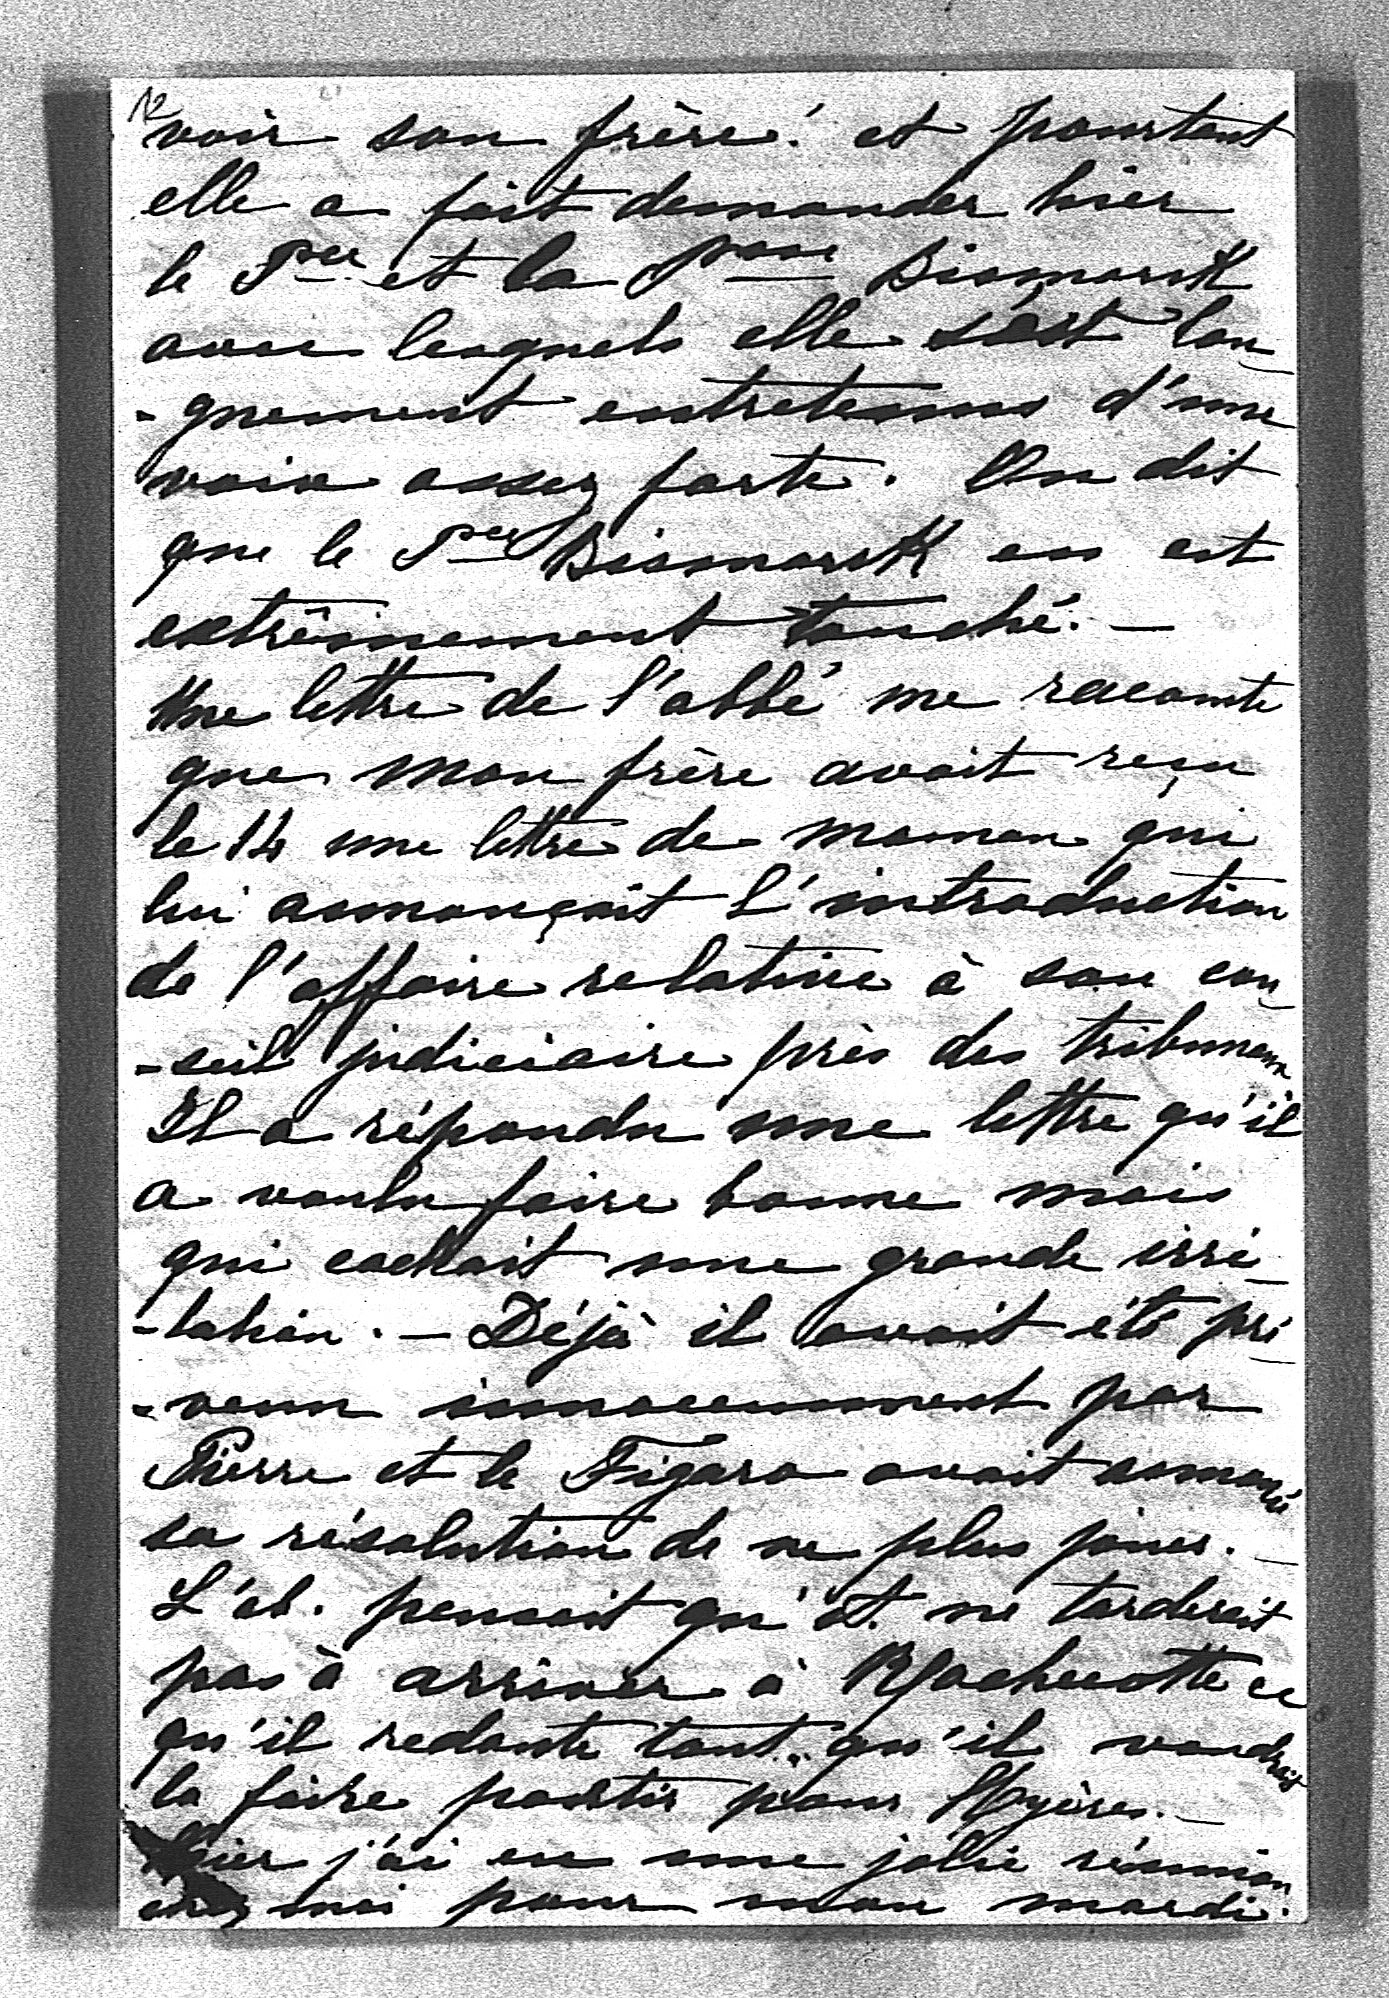 12
voir son frère! et pourtant
elle a fait demander hier
le Pce et la Psse Bismarck
avec lesquels elle s'est lon
-guement entretenus d'une
voix assez forte. On dit
que le Pce Bismarck en est
extrêmement touché. —
Une lettre de l'abbé me raconte
que mon frère avait reçu
le 14 une lettre de maman qui
lui annonçait l'introduction
de l'affaire relative à son con
-seil judiciaire près des tribunaux
Il a répondu une lettre qu'il
a voulu faire bonne mais
qui cachait une grande irri
-tation. — Déjà il avait été pré
-venu innocemment par
Pierre et le Figaro avait annoncé
sa résolution de ne plus jouer. —
L'ab. pensait qu'il ne tarderait
pas à arriver à ce
qu'il redoute tant.. qu'il voudrait
la faire partir pour Hyères. —
Hier j'ai eu une jolie réunion
chez moi pour mon mardi.